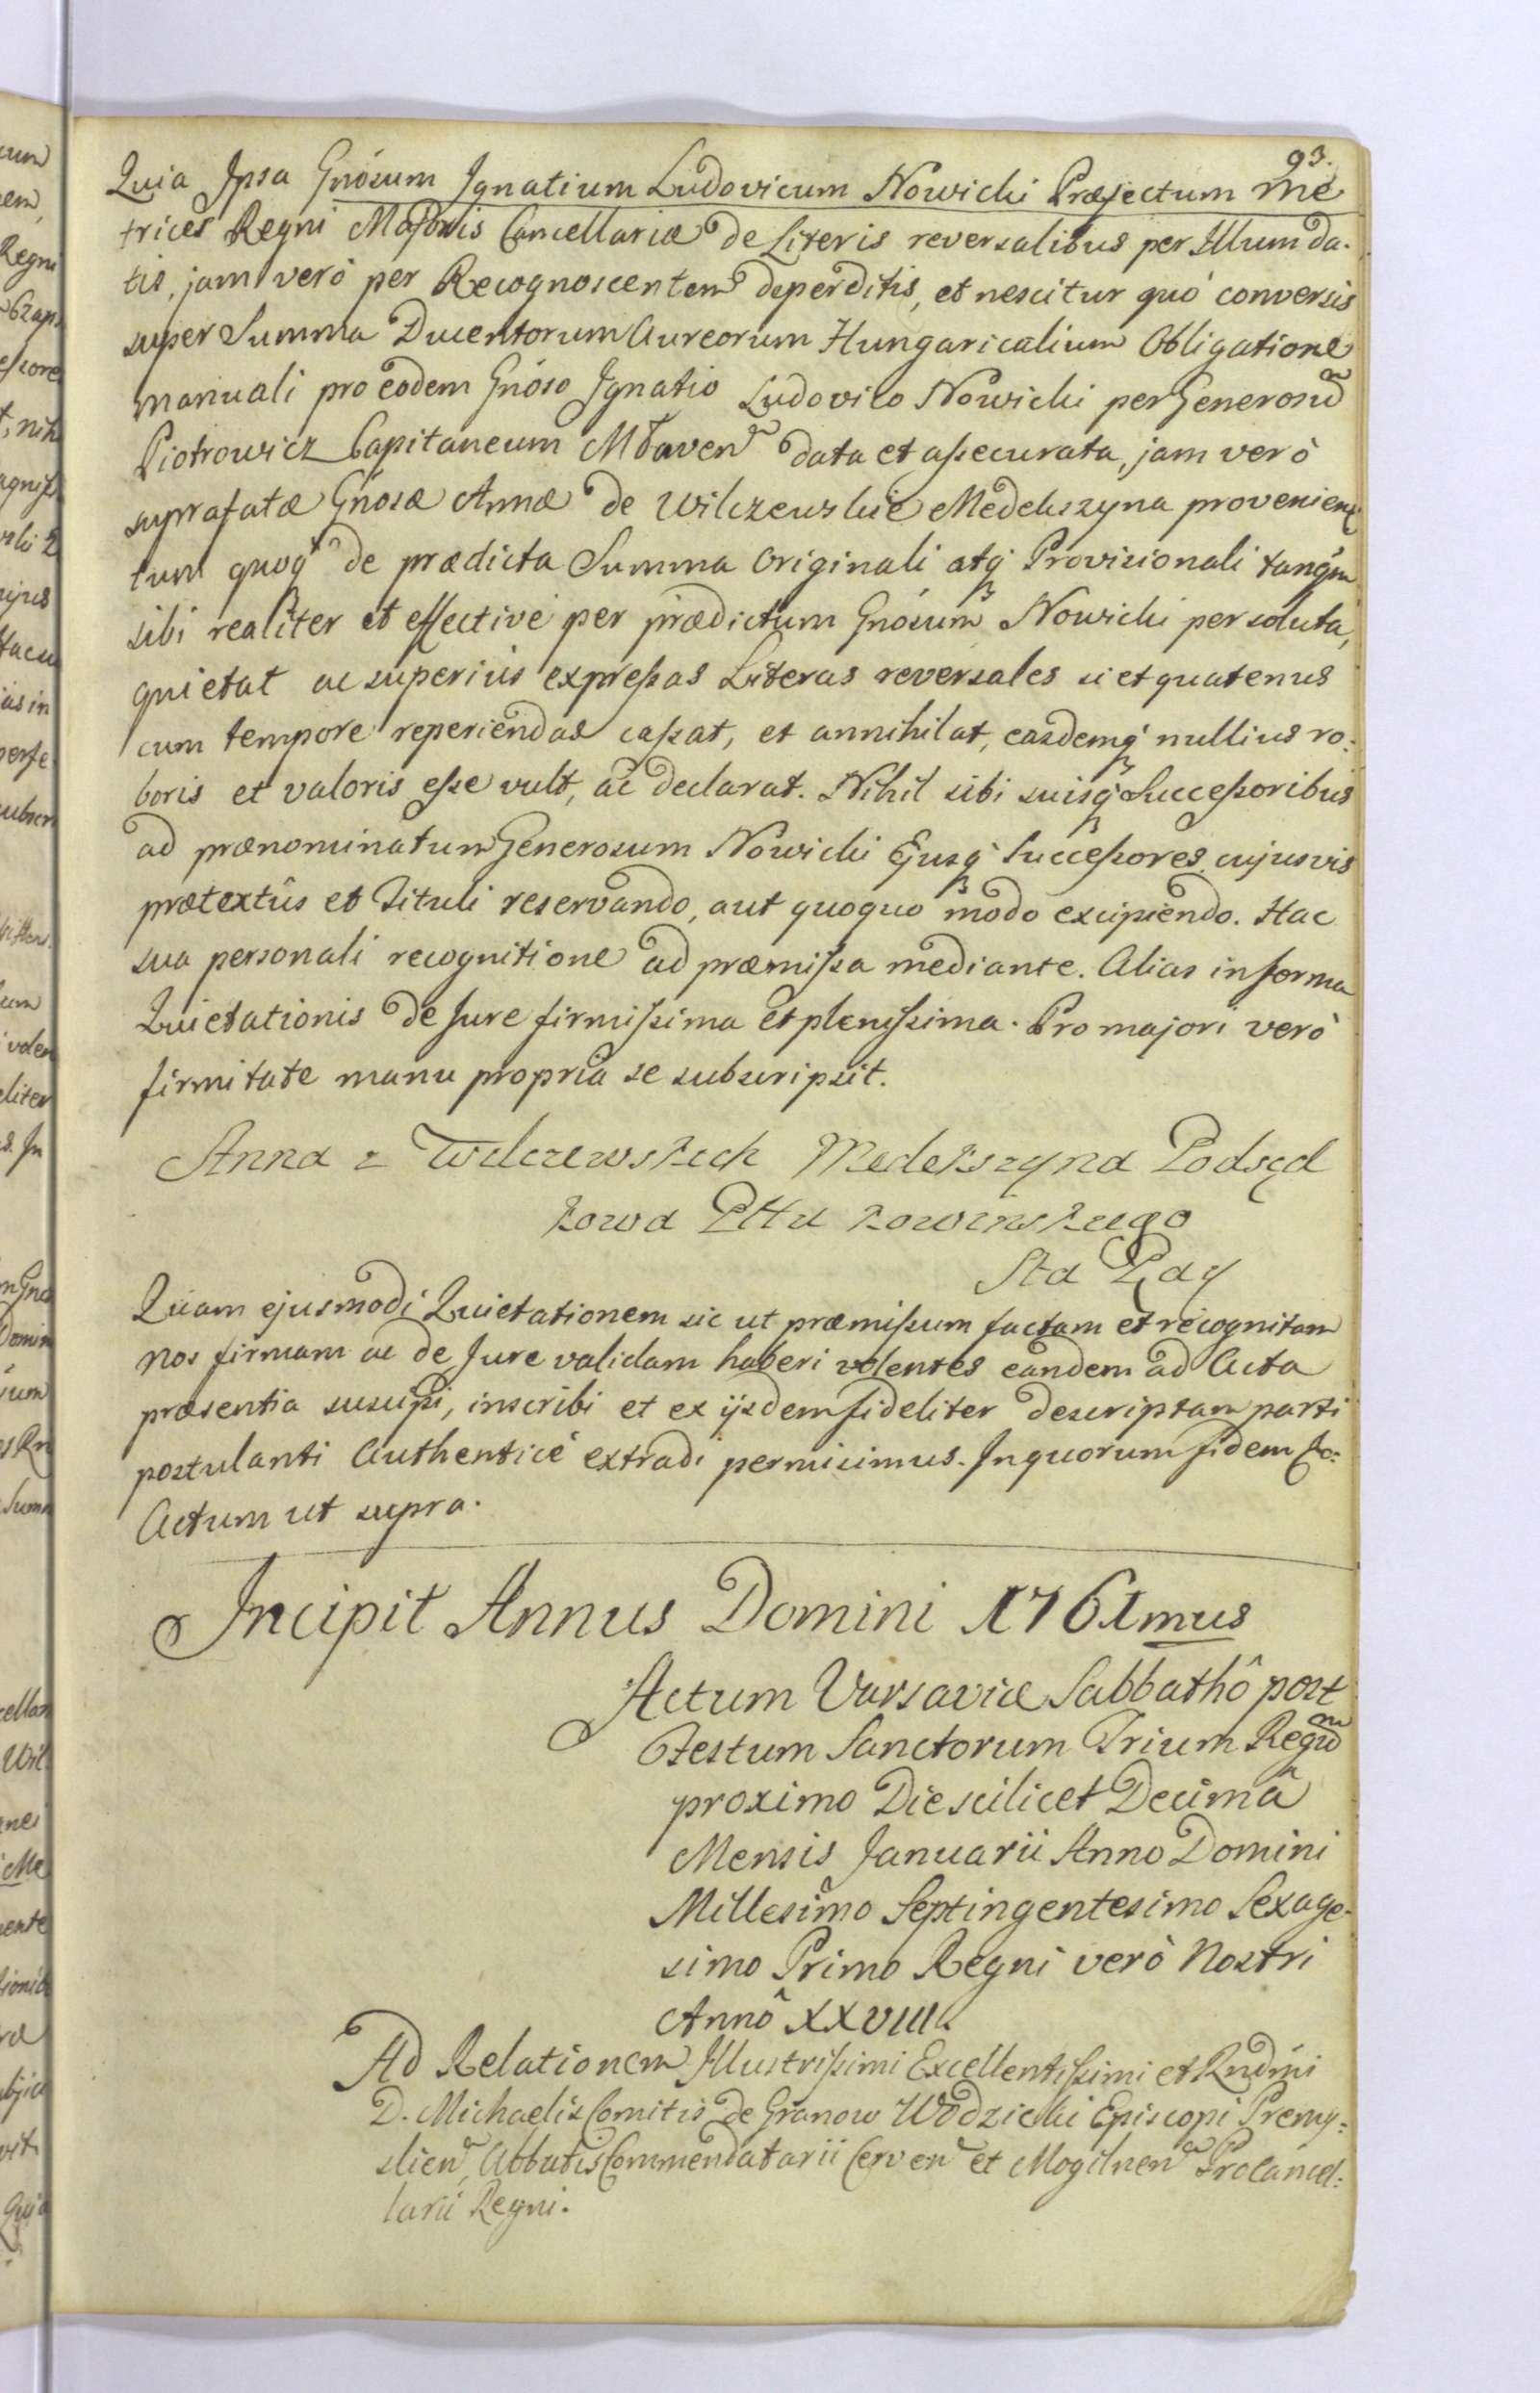 93.
Quia Ipsa Gnósum Ignatium Ludovicum Nowicki Præfectum Me
trices Regni Majoris Cancellariæ de Literis reversalibus per Illum da-
tis, jam verò per Recognoscentem deperditis, et nescitur quó conversis
super Summa Ducentorum Aureorum Hungaricalium Obligatione
manuali pro eodem Gnóso Ignatio Ludovico Nowicki per Generosũ
Piotrowicz Capitaneum data et assecurata, jam verò
suprafatæ Gnósæ Annæ de Wilczewskie Medekszyna provenien
tum quoq de prædicta Summa Originali atq Provisionali tanq̃m
sibi realiter et effectivé per prædictum Gnósum Nowicki persoluta,
quietat ac superiùs expressas Literas reversales si et quatenus
cum tempore reperiendas cassat, et annihilat, easdemq nullius ro-
boris et valoris esse vult, ac declarat. Nihil sibi suisq Successoribus
ad prænominatum Generosum Nowicki Ejusq Successores cujusvis
prætextûs et Tituli reservando, aut quoquo modo excipiendo. Hac
sua personali recognitione ad præmissa mediante. Alias in forma
Quietationis de Jure firmissima et plenissima. Pro majori verò
firmitate manu propria se subscripsit.
Anna z Wilczewskich Medekszyna Podsęd
kowa Pttu kowinskiego
Quam ejusmodi Quietationem sic ut præmissum factam et recognitam
Nos firmam ac de Jure validam haberi volentes eandem ad Acta
præsentia suscipi, inscribi et ex ijsdem fideliter descriptam parti
postulanti Authenticé extradi permisimus. In quorum fidem &c:
Actum ut supra.
Incipit Annus Domini 1761mus
Actum Varsaviæ Sabbathô post
Festum Sanctorum Trium Regũ
proximo Die scilicet Decimâ
Mensis Januarii Anno Domini
Millesimo Septingentesimo Sexage-
simo Primo Regni verò Nostri
Annô XXVIII.
Ad Relationem Illustrissimi Excellentissimi et Rndmi
D. Michaelis Comitis de Granow Wodzicki Episcopi Premy:
slien, Abbatis Commendatarii Cerven et Mogilnen Procancel:
larii Regni.